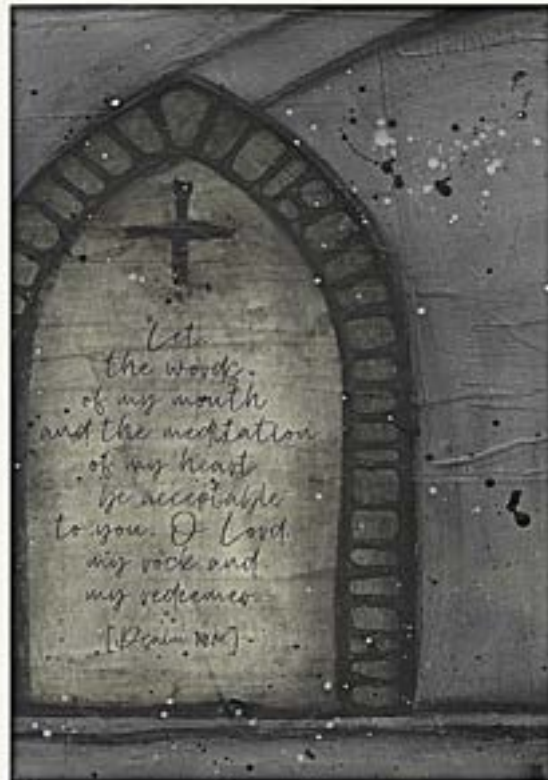 Let
the words
of my mouth
and the meditation
of my heart
be acceptable
to you, O Lord
my rock and
my redeemer.
[Psalm